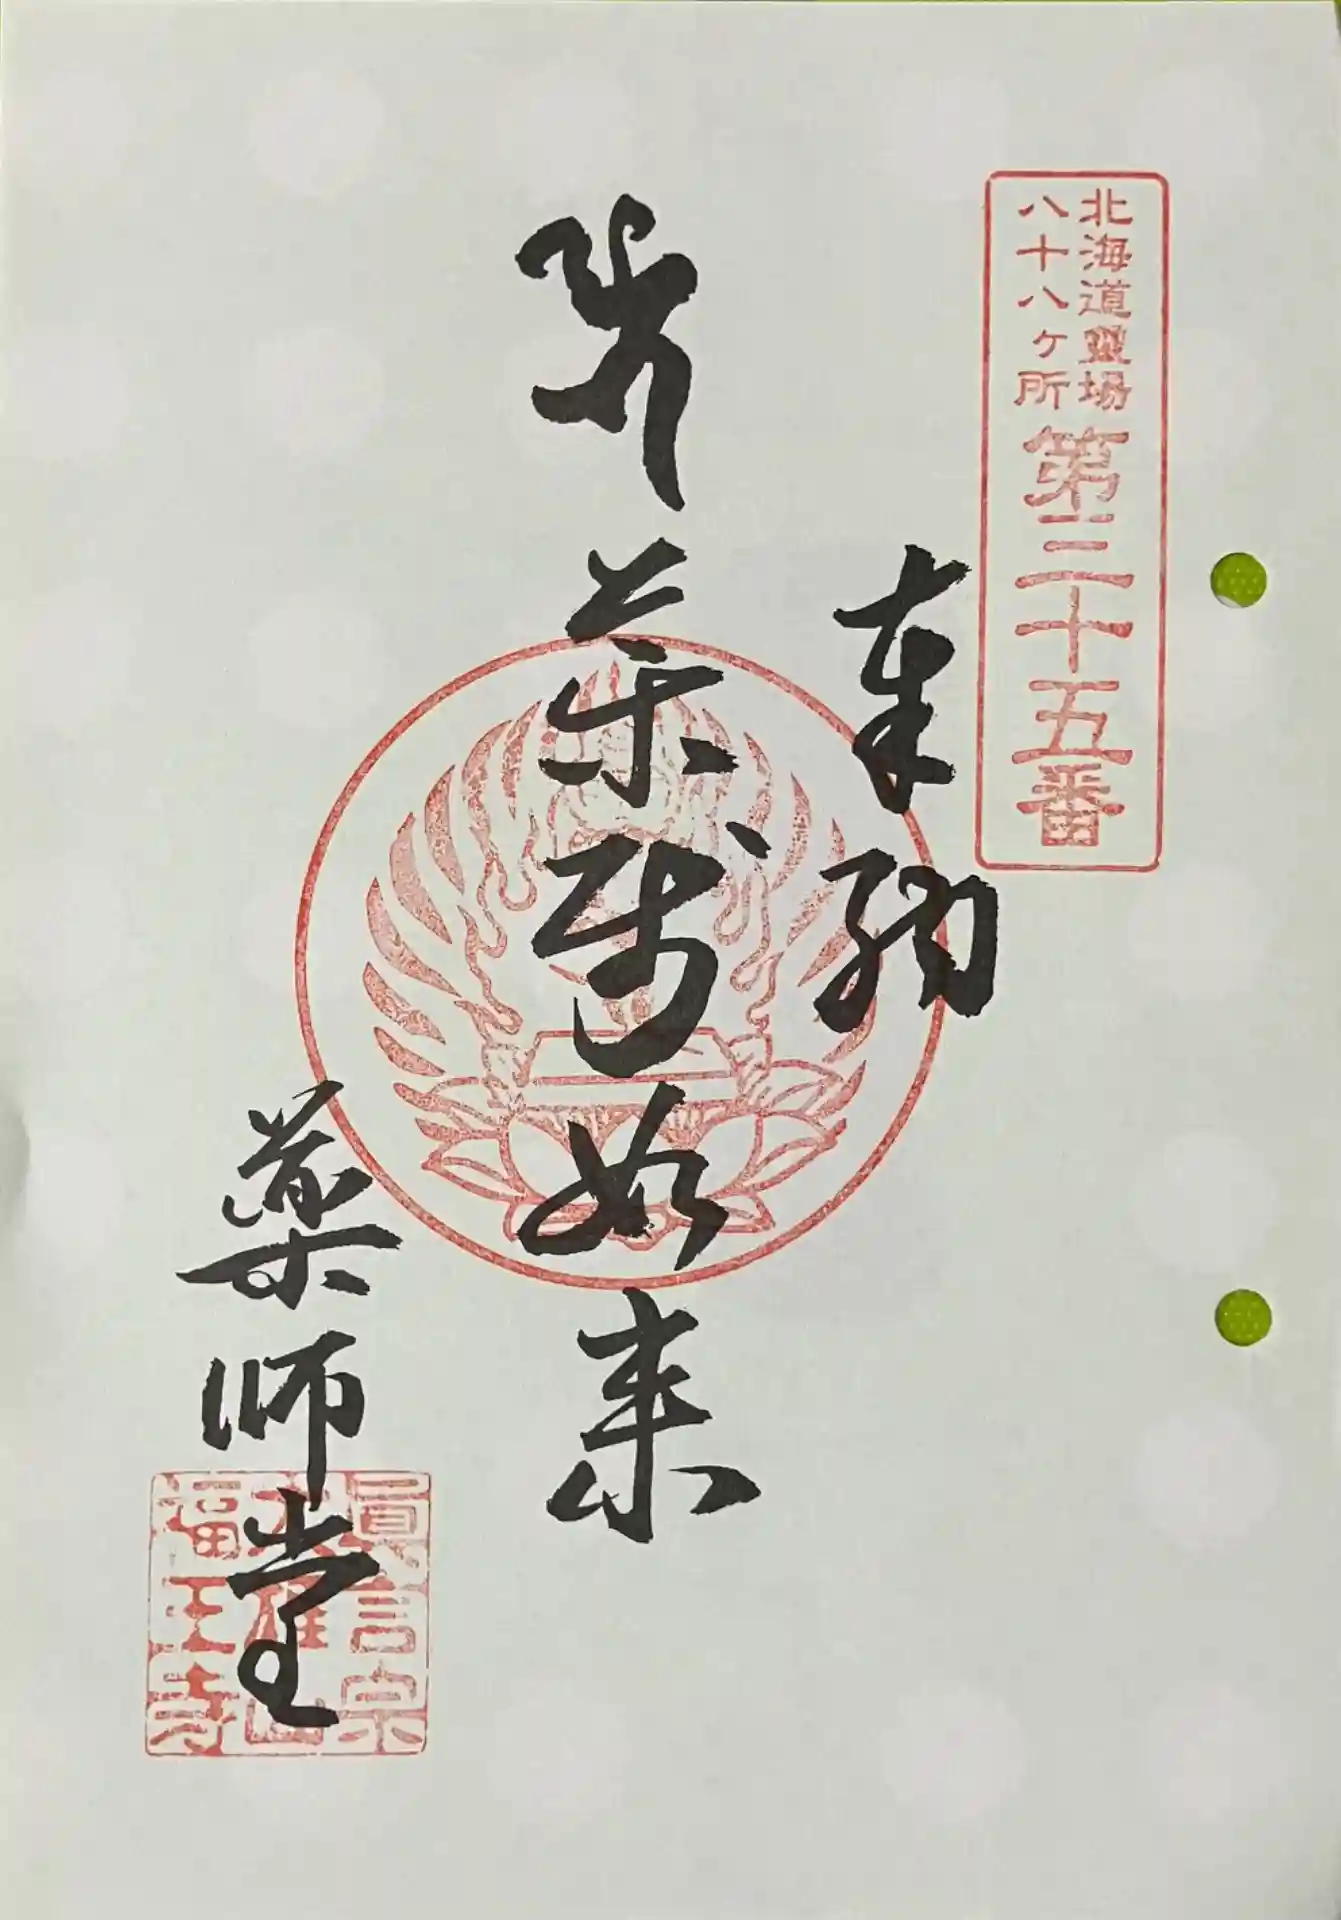 北海道霊場
八十八ヶ所
第三十五番
奉納
薬師如来
薬師堂
眞言宗
大雄山
福王寺